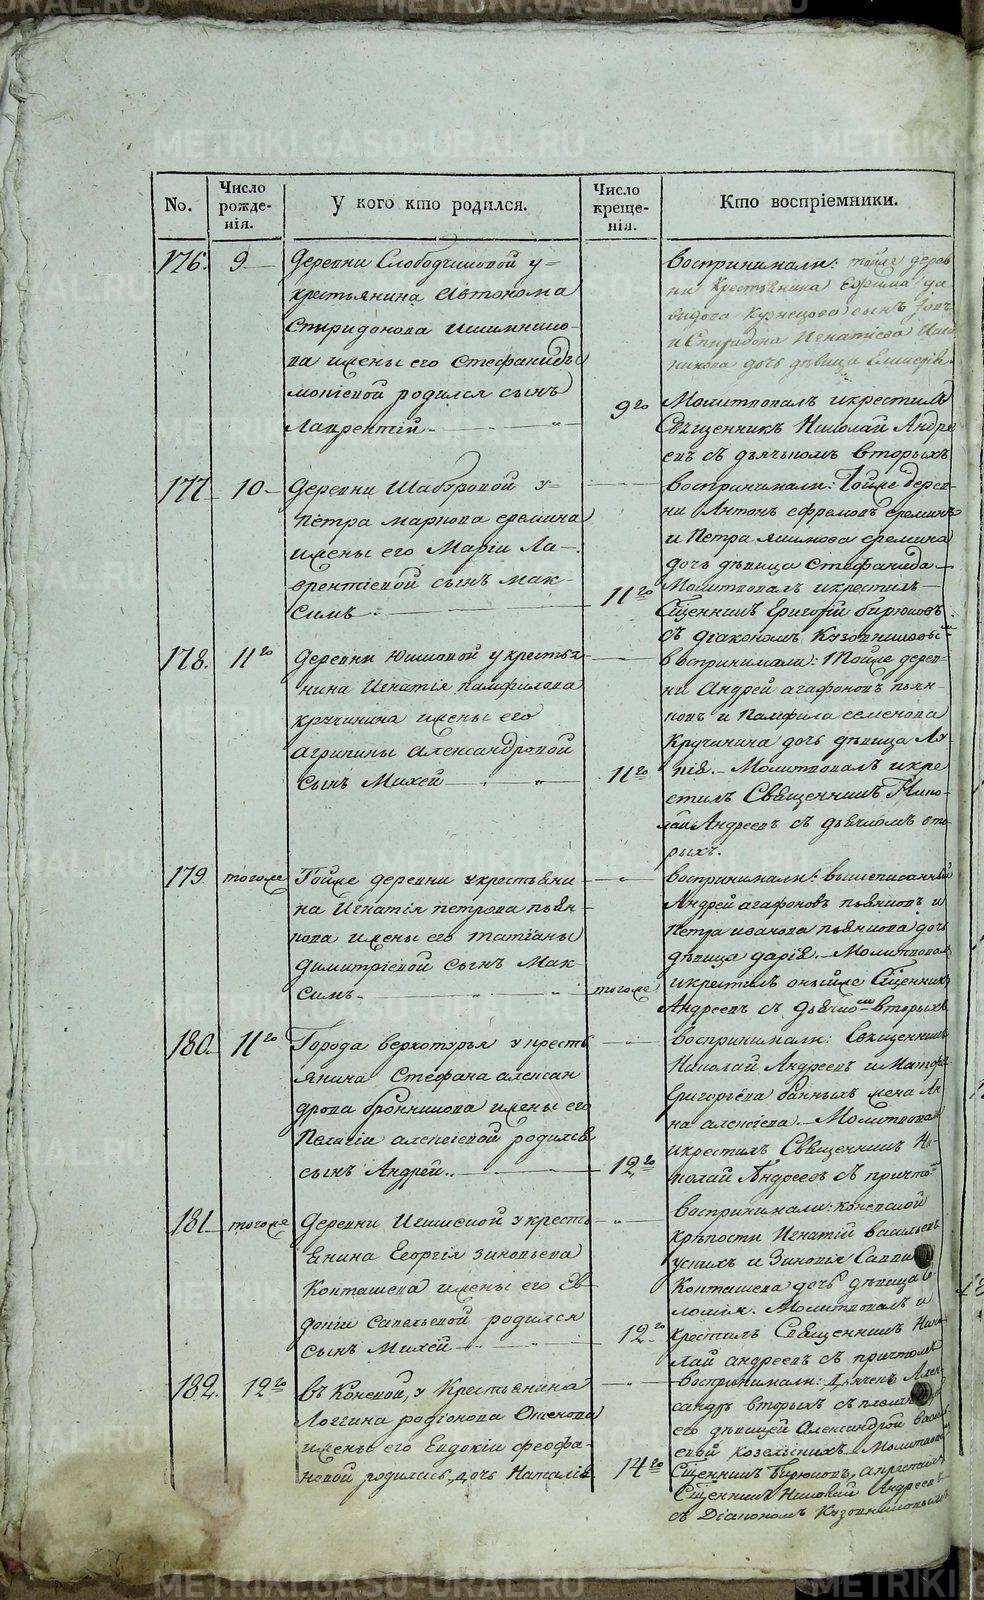 No.
Число рожде-
нія.
У кого кто родился.
Число креще-
нія.
Кто воспріемники.
176. 9
Деревни Слободчиковой у
крестьянина Автонома
Спиридонова
жены его Стефаниды
родился сынъ
Лаврентій
9го
воспринимали: тойже дерев
ни крестьянина Ефима Да
видова Кузнецова сынъ
и Спиридона Игнатіева
дочь дѣвица
Молитвовалъ и крестилъ
Священникъ Николай Андре
евъ съ дьячкомъ вторыхъ
177 10
Деревни у
Петра Маркова Еремина
жены его Маріи Ла-
врентіевой сынъ Мак-
симъ
11го
воспринимали: Тойже дерев-
ни Антонъ Ефремовъ Ереминъ
и Петра Якимова Еремина
дочь дѣвица Стефанида
Молитвовалъ и крестилъ
Сщенникъ Григорій Бирюковъ
съ діакономъ Кузовниковы
178. 11го
Деревни у крестья
нина Игнатія Памфилова
Кручинина жены его
Агрипины Александровой
сынъ Михей
11го
воспринимали: Тойже дерев-
ни Андрей Агафоновъ Пьян-
ковъ и Памфила Семенова
Кручинина дочь дѣвица
Молитвовалъ и кре
стилъ Священникъ Нико-
лай Андреевъ съ дьячкомъ вто-
рыхъ.
179. тогоже
Тойже деревни у крестьяни
на Игнатія Петрова Пьян-
кова жены его Татіаны
Димитріевой сынъ Мак-
симъ
тогоже
воспринимали: вышеписанный
Андрей Агафоновъ Пьянковъ и
Петра Иванова Пьянкова дочь
дѣвица Дарія. Молитвовалъ
и крестилъ онъ же Сщенникъ
Андреевъ съ дьячко вторыхъ
180. 11го
Города Верхотурья у кресть
янина Стефана Алексан
дрова Бронникова жены его
Пелагіи Алексіевой родился
сынъ Андрей
12го
воспринимали: Священникъ
Николай Андреевъ и
Григорьева жена Ан
на Алексіева. Молитвовалъ
и крестилъ Священникъ Ни-
колай Андреевъ съ причто
181 тогоже
Деревни у кресть
янина Георгія Зиновьева
Конташева жены его Ев
докіи Савельевой родился
сынъ Михей
12го
воспринимали:
крѣпости Игнатій
и Зиновія Савви
Конташева дочь дѣвица
Молитвовалъ и
крестилъ Священникъ Нико
лай Андреевъ съ причтомъ
182. 12го
въ Коневой, у крестьянина
Логгина Родіонова
жены его Евдокіи Феофа-
новой родилась дочь Наталія
14го
воспринимали: Дьячекъ Алек
сандръ вторыхъ съ
его дѣвицей Александрой
Молитвовалъ
Сщенникъ Бирюковъ, а крестилъ
Сщенникъ Николай Андреевъ
съ Діакономъ Кузовниковымъ
METRIKI.GASO-URAL.RU